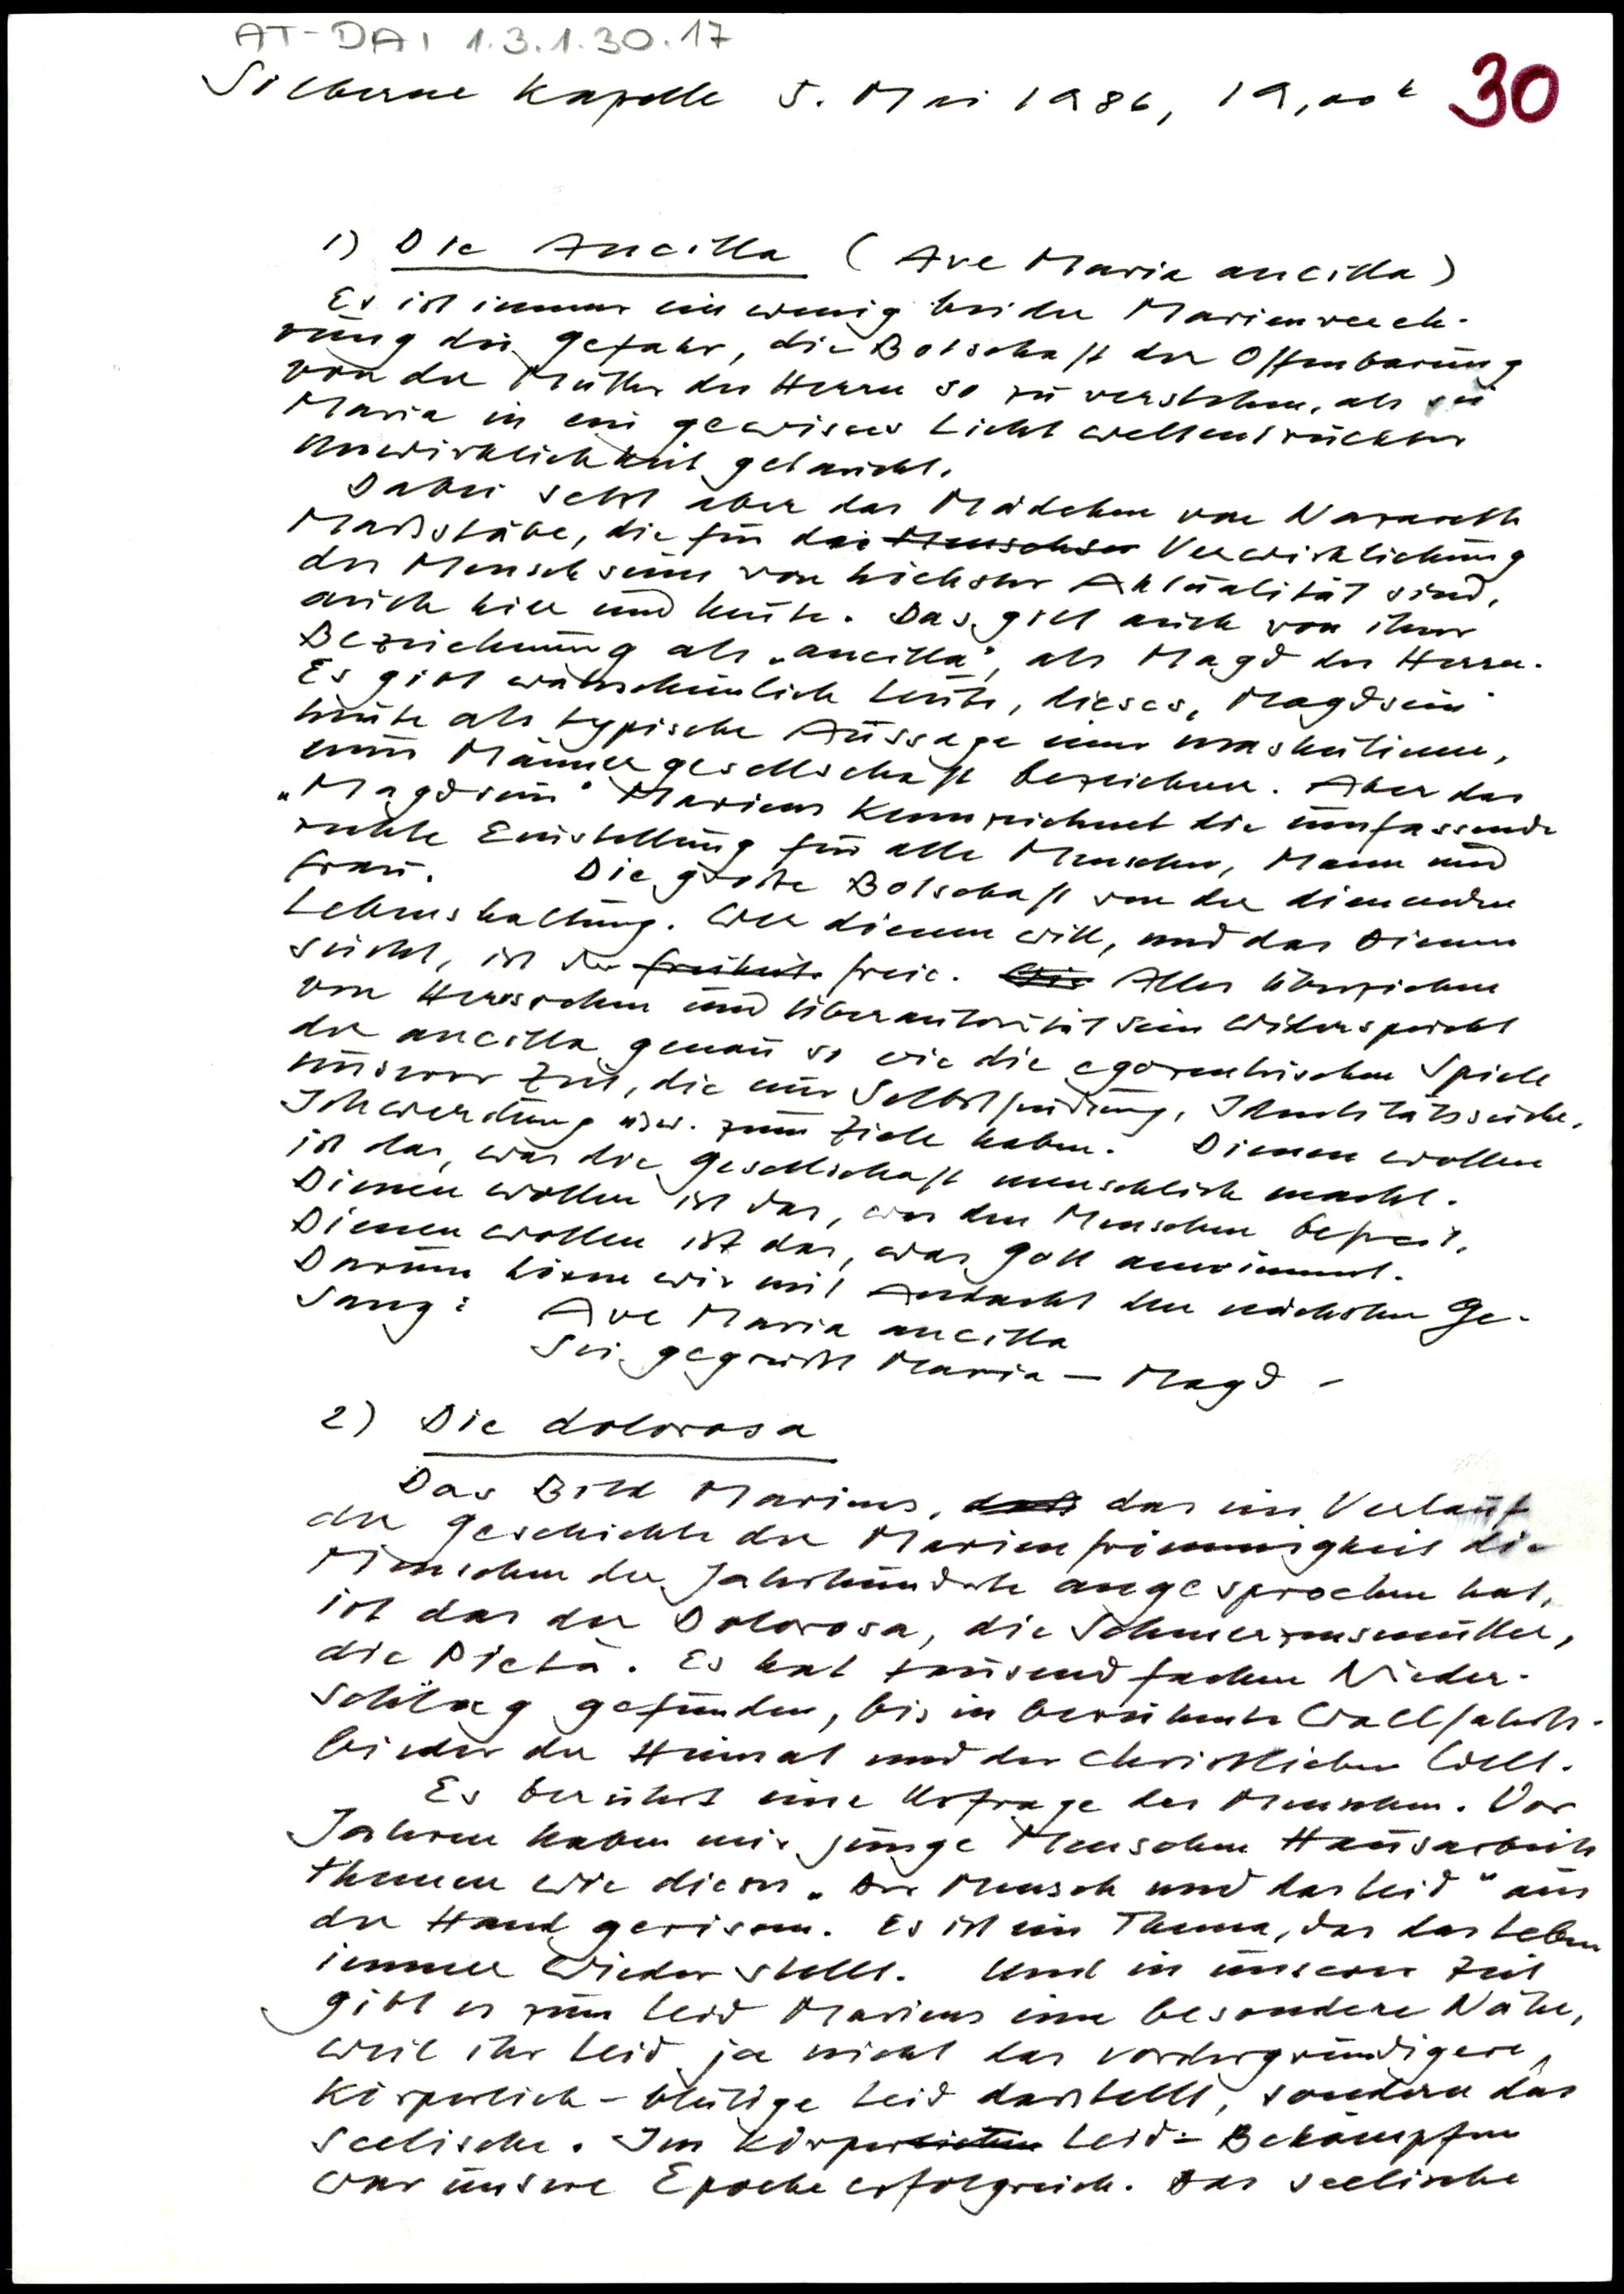 AT-DAI 1.3.1.30.17
Silberne Kapelle 5. Mai 1986, 19,00h 30
1) Die Ancilla (Ave Maria ancilla)
Es ist immer ein wenig bei der Marienvereh-
rung die Gefahr, die Botschaft der Offenbarung
von der Mutter des Herrn so zu verstehen, als sei
Maria in ein gewisses Licht weltentrückter
Unwirklichkeit getaucht.
Dabei setzt aber das Mädchen von Nazareth
Maßstäbe, die für die Menschsei Verwirklichung
des Menschseins von höchster Aktualität sind,
auch hier und heute. Das gilt auch von ihrer
Bezeichnung als "ancilla", als Magd des Herrn.
Es gibt wahrscheinlich Leute, dieses "Magdsein"
heute als typische Aussage einer maskulinen,
einer Männergesellschaft bezeichnen. Aber das
"Magdsein" Mariens kennzeichnet die umfassende
rechte Einstellung für alle Menschen, Mann und
Frau. Die große Botschaft von der dienenden
Lebenshaltung. Wer dienen will, und das Dienen
sucht, ist der freiheits freie. Die Alles überziehen
von Herrschen und Überautoritätsein widerspricht
der ancilla genau so wie die egozentrischen Spiele
unserer Zeit, die nur Selbstfindung, Identitätssuche,
Ichwerdung usw. zum Ziele haben. Dienen wollen
ist das, was die Gesellschaft menschlich macht.
Dienen wollen ist das, was den Menschen befreit.
Dienen wollen ist das, was Gott annimmt.
Darum hören wir mit Andacht den nächsten Ge-
sang: Ave Maria ancilla
Sei gegrüßt Maria – Magd –
2) Die dolorosa
Das Bild Mariens, das das im Verlauf
der Geschichte der Marienfrömmigkeit die
Menschen der Jahrhunderte angesprochen hat,
ist das der Dolorosa, die Schmerzensmutter,
die Pietà. Es hat tausendfachen Nieder-
schlag gefunden, bis in berühmte Wallfahrts-
bilder der Heimat und der christlichen Welt.
Es berührt eine Urfrage des Menschen. Vor
Jahren haben mir junge Menschen Hausarbeits
themen wie dieses "Der Mensch und das Leid" aus
der Hand gerissen. Es ist ein Thema, das das Leben
immer wieder stellt. Und in unserer Zeit
gibt es zum Leid Mariens eine besondere Nähe,
weil ihr Leid ja nicht das vordergründigere,
körperlich-blutige Leid darstellt, sondern das
seelische. Im körperlichen Leid-Bekämpfen
war unsere Epoche erfolgreich. Das seelische